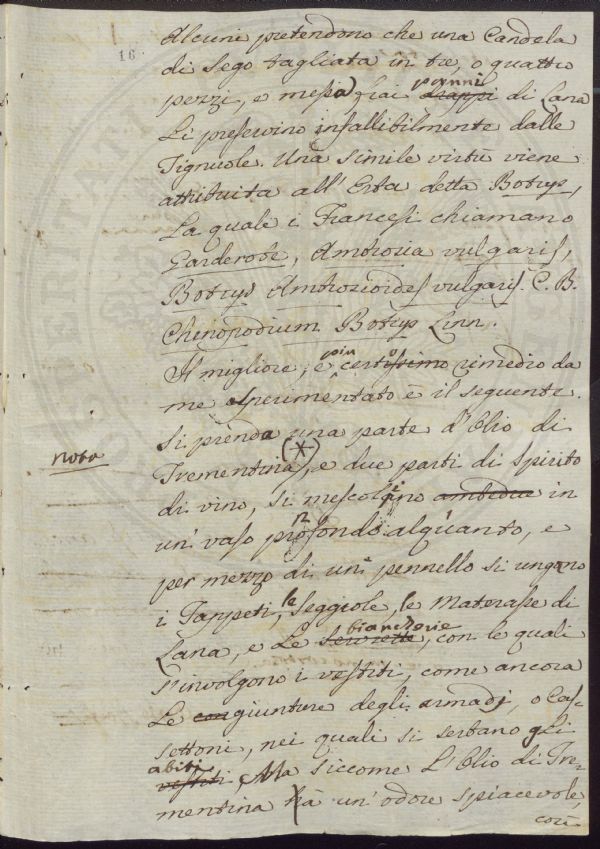 16
Alcuni pretendono che una Candela
di Sego tagliata in tre, o quattro
panni
pezzi, e messa frai drappi di Lana
li preservino infallibilmente dalle
Tignuole. Una simile virtù viene
attribuita all' Erba detta Botrys,
la quale i Francesi chiamano
Garderobe, Ambrosia vulgaris,
Botrys Ambrosioides vulgaris. C. B.
Chenopodium Botrys Linn.
più
Il migliore, e certissimo rimedio da
me esperimentato è il seguente.
Si prenda una parte d'Olio di
(X)
nota
Trementina, e due parti di Spirito
di vino, si mescolino ambidue in
un' vaso profondo alquanto, e
per mezzo di un' pennello si ungano
i Tappeti, le Seggiole, le Materasse di
biancherie
Lana, e le, con le quali
s'involgono i vestiti, come ancora
le congiunture degli armadj, o Cas-
settoni, nei quali si serbano gli
abiti
vestiti. Ma siccome l'Olio di Tre-
mentina hà un' odore spiacevole,
così